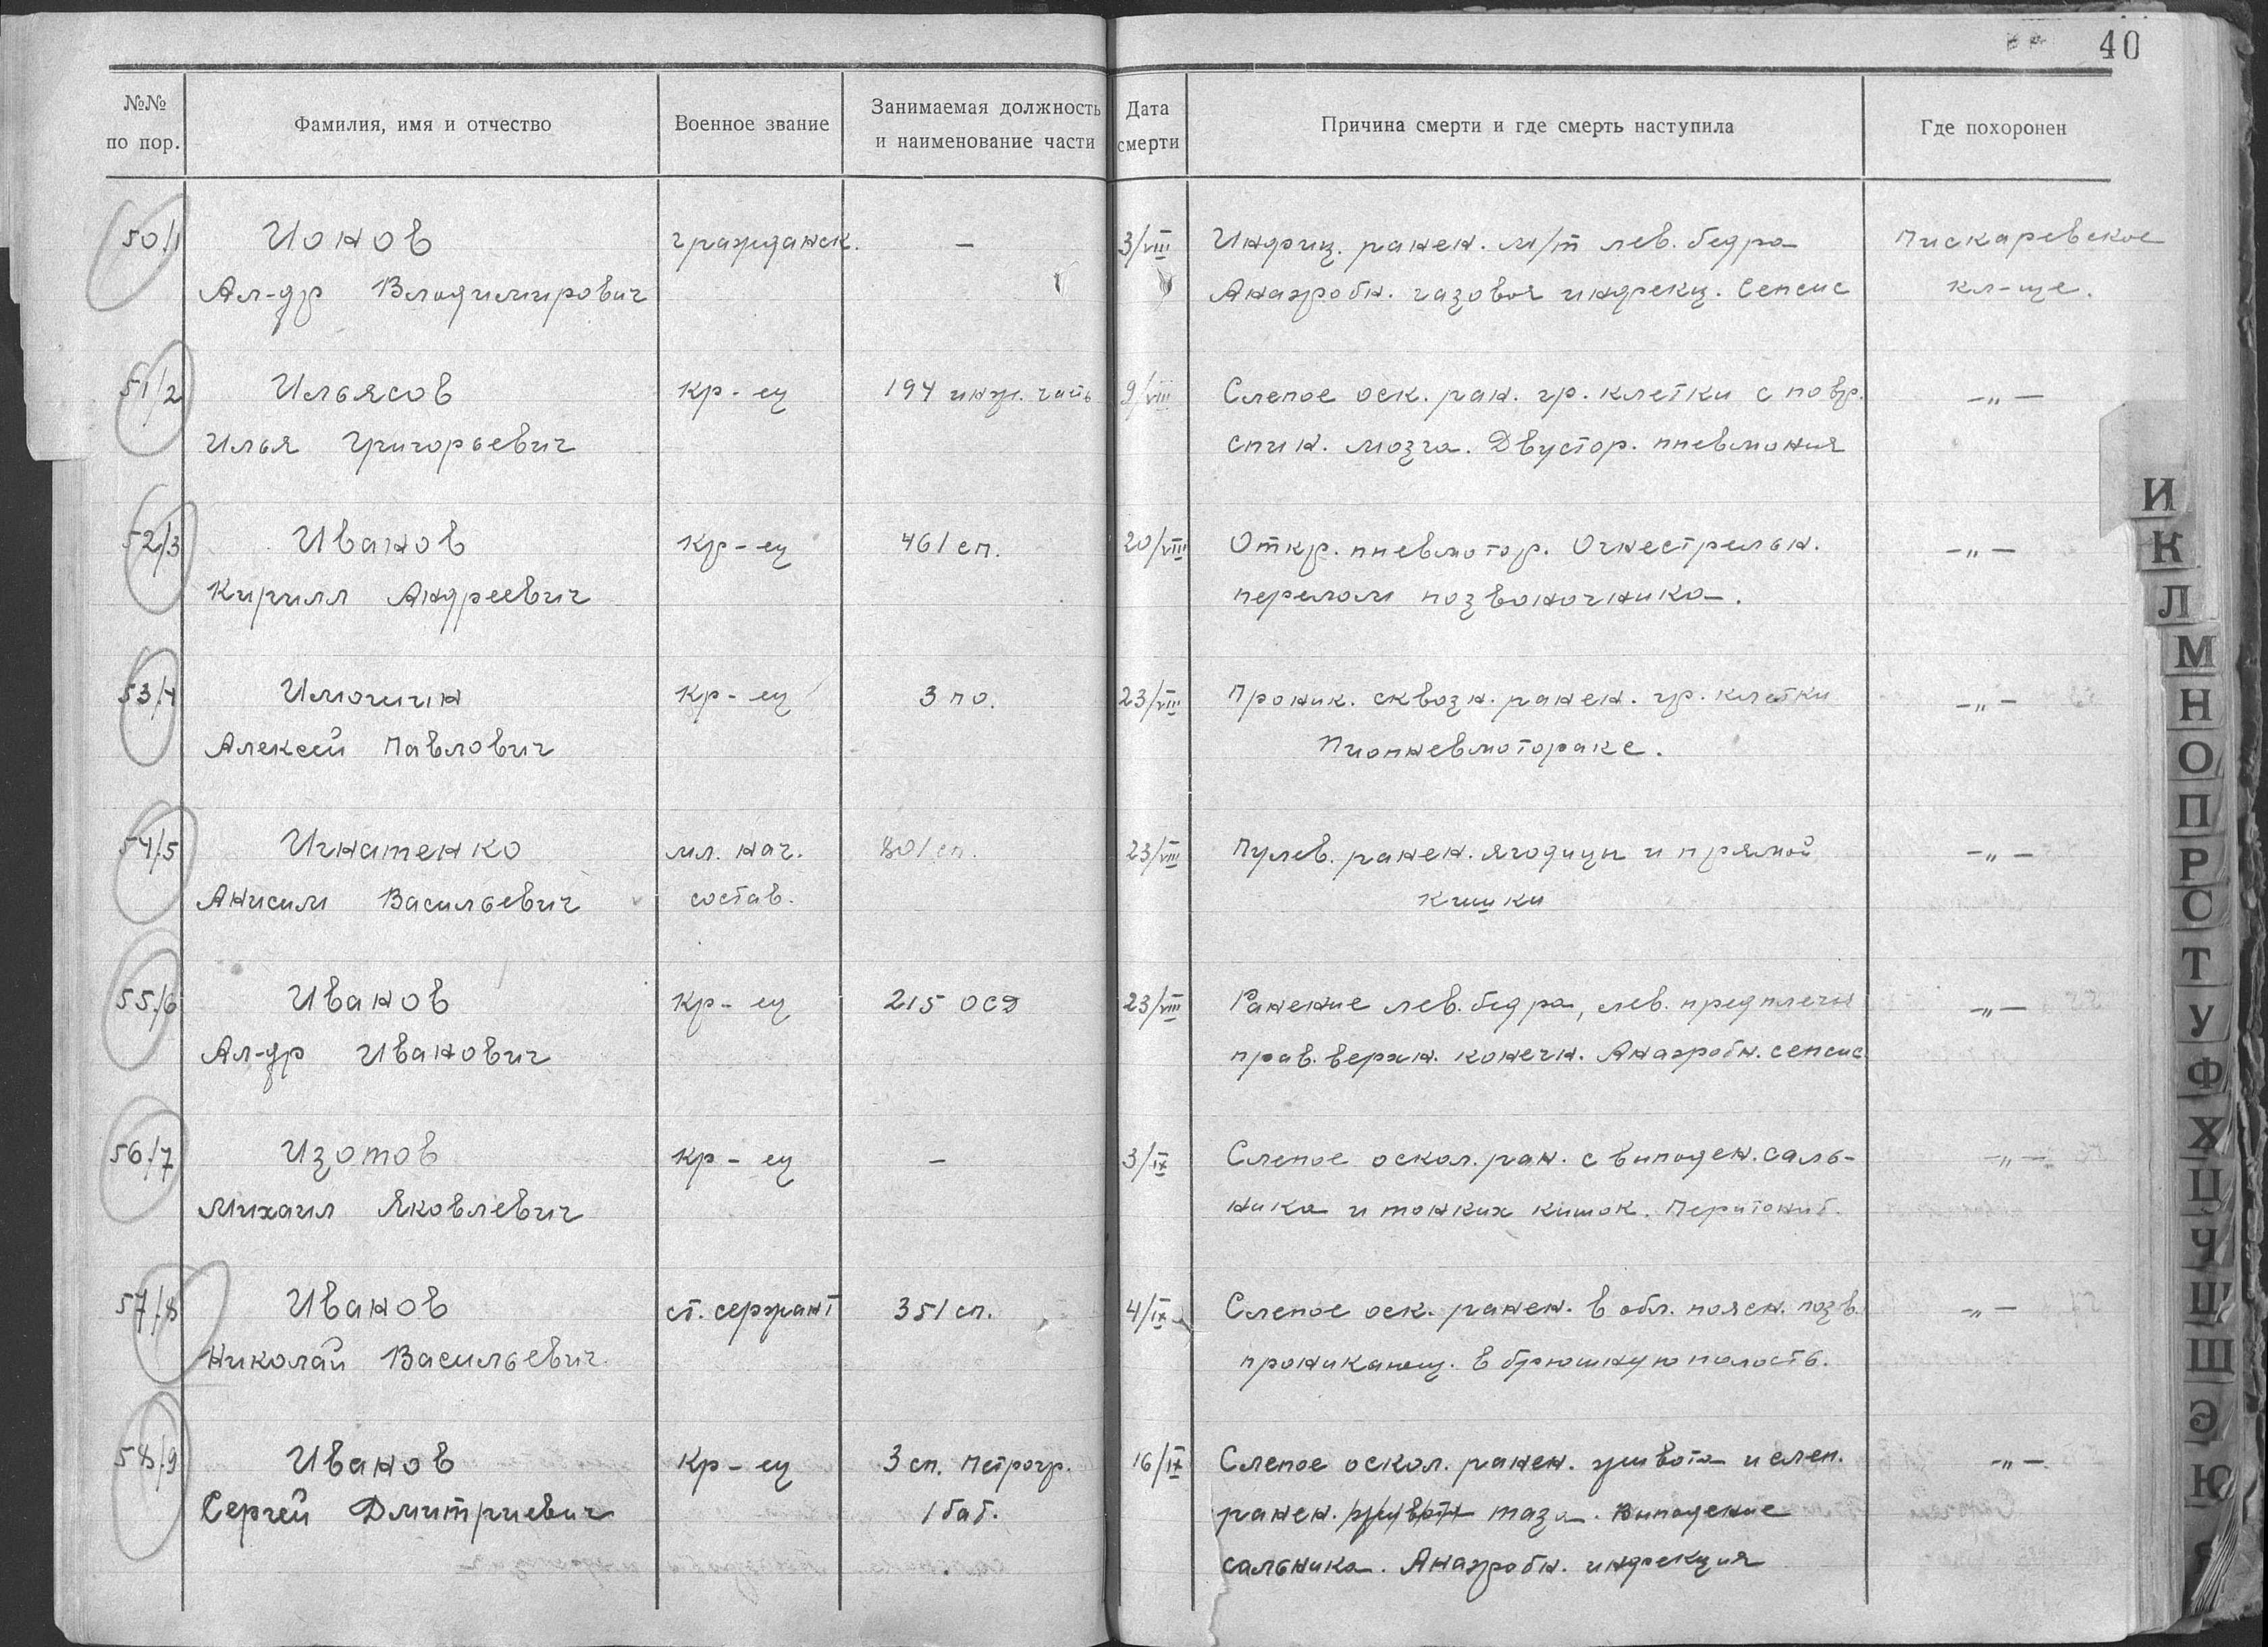 40
№№ по пор. Фамилия, имя и отчество Военное звание Занимаемая должность и наименование части Дата смерти Причина смерти и где смерть наступила Где похоронен
50/1 Ионов гражданск. — 3/VIII Инфиц. ранен. м/т лев. бедра Пискаревское
Ал-др Владимирович Анаэробн. газовая инфекц. Сепсис кл-ще.
51/2 Ильясов кр-ец 194 инж. часть 9/VIII Слепое оск. ран. гр. клетки с повр. —„—
Илья Григорьевич спин. мозга. Двустор. пневмония
52/3 Иванов кр-ец 461 сп. 20/VIII Откр. пневмотор. Огнестрельн. —„—
Кирилл Андреевич перелом позвоночника.
53/4 кр-ец 3 по. 23/VIII Проник. сквозн. ранен. гр. клетки —„—
Алексей Павлович Пиопневмоторакс.
54/5 Игнатенко мл. нач. 801 сп. 23/VIII Пулев. ранен. ягодицы и прямой —„—
Анисим Васильевич состав. кишки
55/6 Иванов кр-ец 215 ОСД 23/VIII Ранение лев. бедра, лев. предплечья —„—
Ал-др Иванович прав. верхн. конечн. Анаэробн. сепсис
56/7 Изотов кр-ец — 3/IX Слепое оскол. ран. с выпаден. саль- —„—
Михаил Яковлевич ника и тонких кишок. Перитонит.
57/8 Иванов ст. сержант 351 сп. 4/IX Слепое оск. ранен. в обл. поясн. позв. —„—
Николай Васильевич проникающ. в брюшную полость.
58/9 Иванов кр-ец 3 сп. Петрогр. 16/IX Слепое оскол. ранен. живота и слеп. —„—
Сергей Дмитриевич 1 бат. ранен. таза. Выпадение
сальника. Анаэробн. инфекция
И
К
Л
М
Н
О
П
Р
С
Т
У
Ф
Х
Ц
Ч
Ш
Щ
Э
Ю
Я